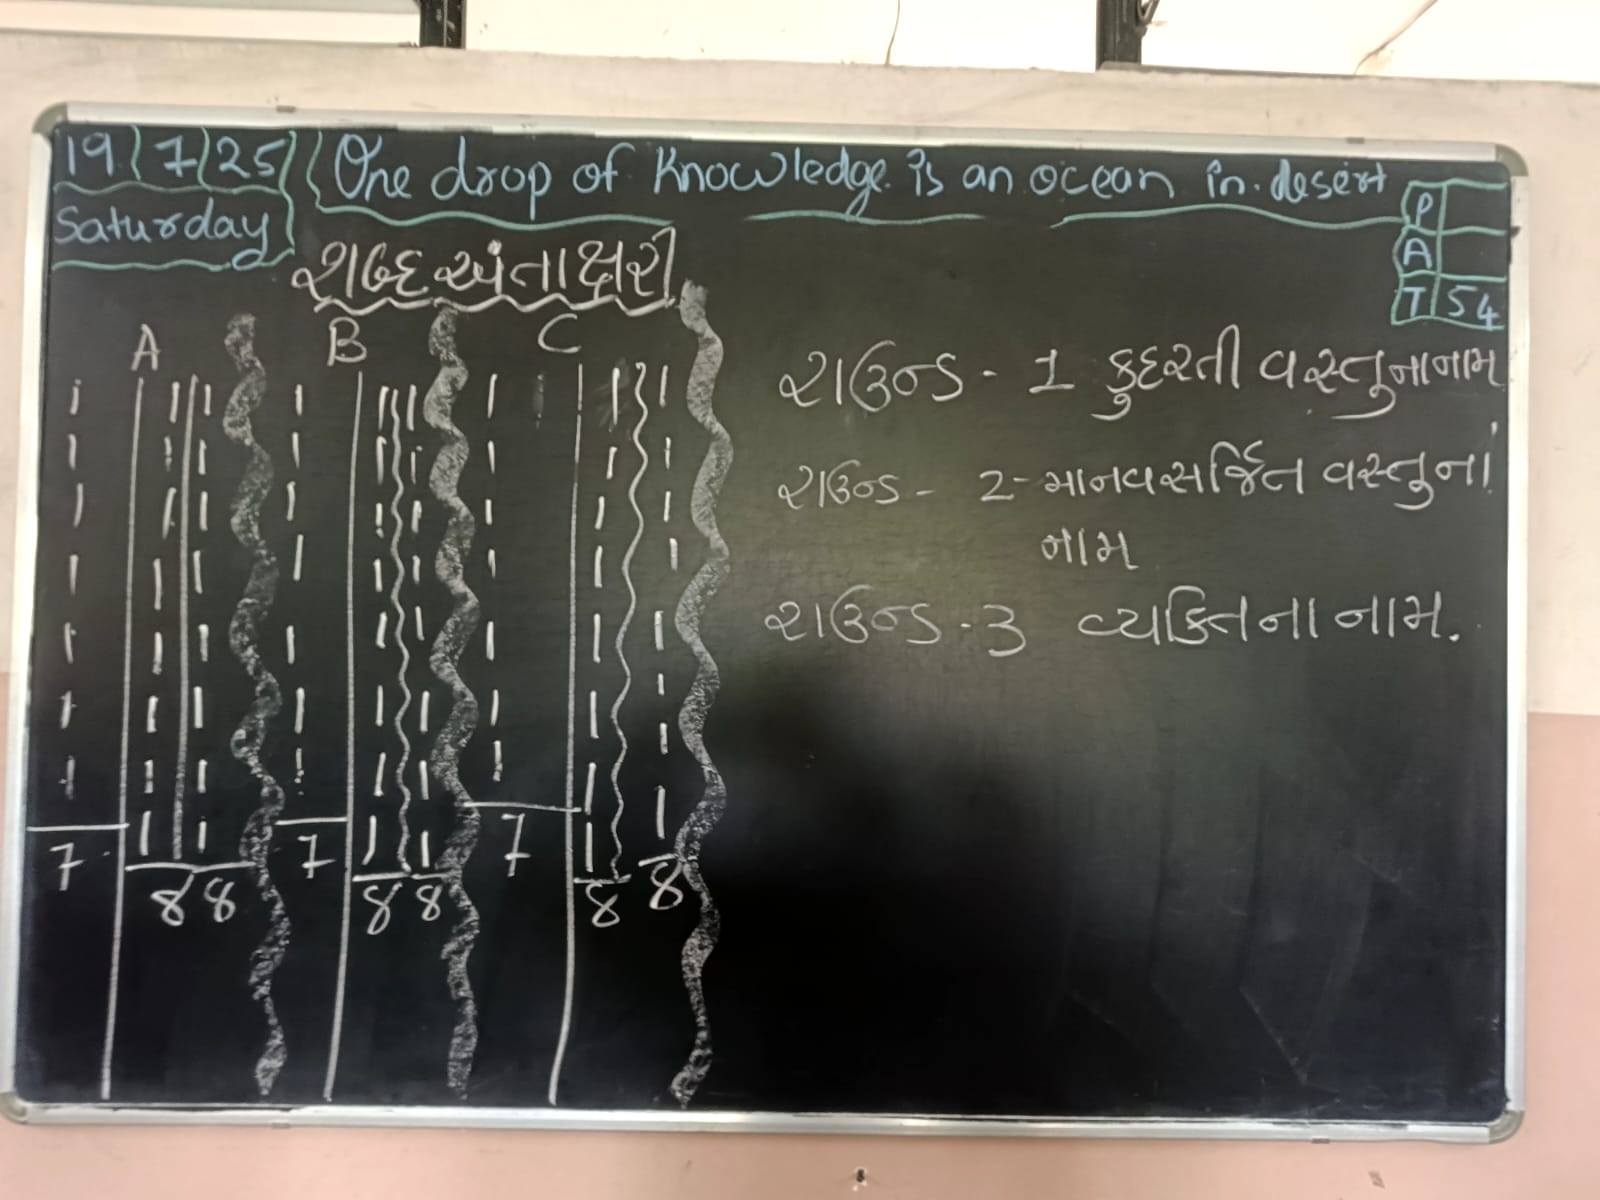 19/7/25 One drop of knowledge is an ocean in desert
Saturday
P
A
T 54
શબ્દ અંતાક્ષરી
A B C
રાઉન્ડ - 1 કુદરતી વસ્તુના નામ
રાઉન્ડ - 2 - માનવસર્જિત વસ્તુનાં
નામ
રાઉન્ડ - 3 વ્યક્તિના નામ.
7 8 8 7 8 8 7 8 8